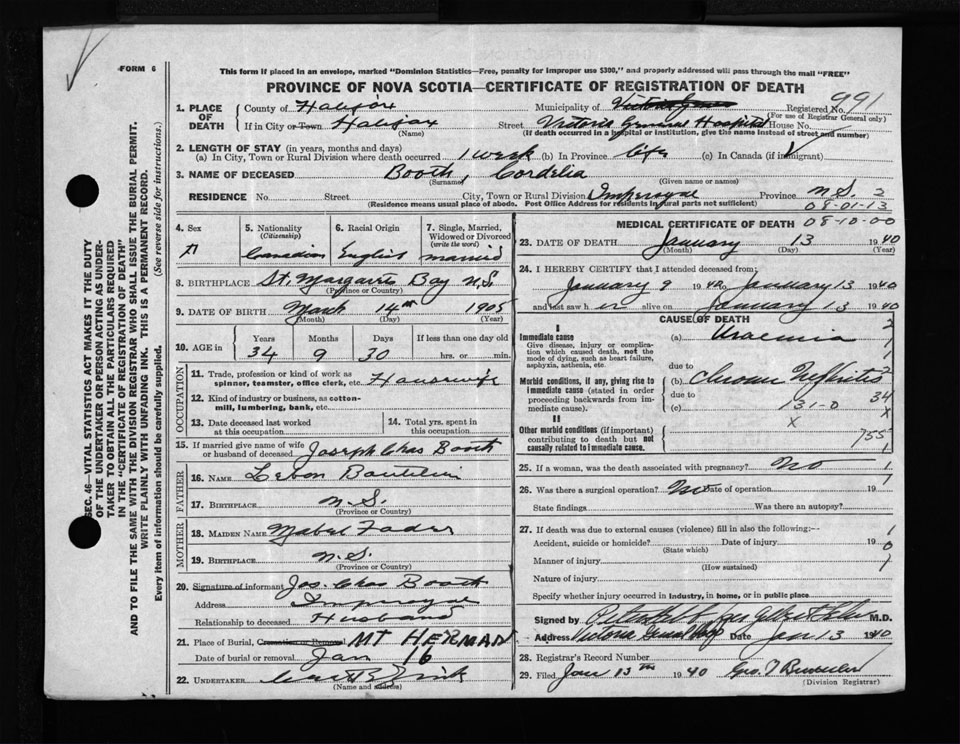 FORM 6
This form if placed in an envelope, marked "Dominion Statistics—Free, penalty for improper use $300," and properly addressed will pass through the mail "FREE"
PROVINCE OF NOVA SCOTIA—CERTIFICATE OF REGISTRATION OF DEATH
1. PLACE OF DEATH { County of Halifax Municipality of Registered No. 991
(For use of Registrar General only)
If in City or Town Halifax Street Victoria General Hospital House No.
(Name) (If death occurred in a hospital or institution, give the name instead of street and number)
2. LENGTH OF STAY (in years, months and days)
(a) In City, Town or Rural Division where death occurred 1 week (b) In Province life (c) In Canada (if immigrant)
3. NAME OF DECEASED Booth, Cordelia
(Surname) (Given name or names)
RESIDENCE No. Street City, Town or Rural Division Imperoyal Province N.S. 2
(Residence means usual place of abode. Post Office Address for residents in rural parts not sufficient) 08-01-13
4. Sex 5. Nationality (Citizenship) Canadian 6. Racial Origin English 7. Single, Married, Widowed or Divorced (write the word) married
8. BIRTHPLACE St. Margarets Bay N.S.
(Province or Country)
9. DATE OF BIRTH March 14th 1905
(Month) (Day) (Year)
10. AGE in Years 34 Months 9 Days 30 If less than one day old hrs. or min.
OCCUPATION
11. Trade, profession or kind of work as spinner, teamster, office clerk, etc. Housewife
12. Kind of industry or business, as cotton-mill, lumbering, bank, etc.
13. Date deceased last worked at this occupation 14. Total yrs. spent in this occupation
15. If married give name of wife or husband of deceased Joseph Chas Booth
FATHER
16. NAME
17. BIRTHPLACE N.S.
(Province or Country)
MOTHER
18. MAIDEN NAME Mabel Fader
19. BIRTHPLACE N.S.
(Province or Country)
20. Signature of informant Jos. Chas Booth
Address Imperoyal
Relationship to deceased Husband
21. Place of Burial, Cremation or Removal MT HERMAN
Date of burial or removal Jan 16
22. UNDERTAKER
(Name and address)
08-10-00
MEDICAL CERTIFICATE OF DEATH
23. DATE OF DEATH January 13 1940
(Month) (Day) (Year)
24. I HEREBY CERTIFY that I attended deceased from:
January 9 1940 to January 13 1940
and last saw her alive on January 13 1940
CAUSE OF DEATH
I
Immediate cause (a) Uraemia
Give disease, injury or complication which caused death, not the mode of dying, such as heart failure, asphyxia, asthenia, etc.
due to
Morbid conditions, if any, giving rise to immediate cause (stated in order proceeding backwards from immediate cause). (b) Chronic Nephritis
due to 34
(c) 131-0 x
II x
Other morbid conditions (if important) contributing to death but not causally related to immediate cause. 755
25. If a woman, was the death associated with pregnancy? No 1
26. Was there a surgical operation? No Date of operation 19
State findings Was there an autopsy?
27. If death was due to external causes (violence) fill in also the following:—
Accident, suicide or homicide? Date of injury 19
(State which)
Manner of injury
(How sustained)
Nature of injury
Specify whether injury occurred in industry, in home, or in public place
Signed by M.D.
Address Victoria General Hosp Date Jan 13 1940
28. Registrar's Record Number
29. Filed Jan 13th 1940
(Division Registrar)
SEC. 46—VITAL STATISTICS ACT MAKES IT THE DUTY
OF THE UNDERTAKER OR PERSON ACTING AS UNDER-
TAKER TO OBTAIN ALL THE PARTICULARS REQUIRED
IN THE "CERTIFICATE OF REGISTRATION OF DEATH"
AND TO FILE THE SAME WITH THE DIVISION REGISTRAR WHO SHALL ISSUE THE BURIAL PERMIT.
WRITE PLAINLY WITH UNFADING INK. THIS IS A PERMANENT RECORD.
Every item of information should be carefully supplied. (See reverse side for instructions.)